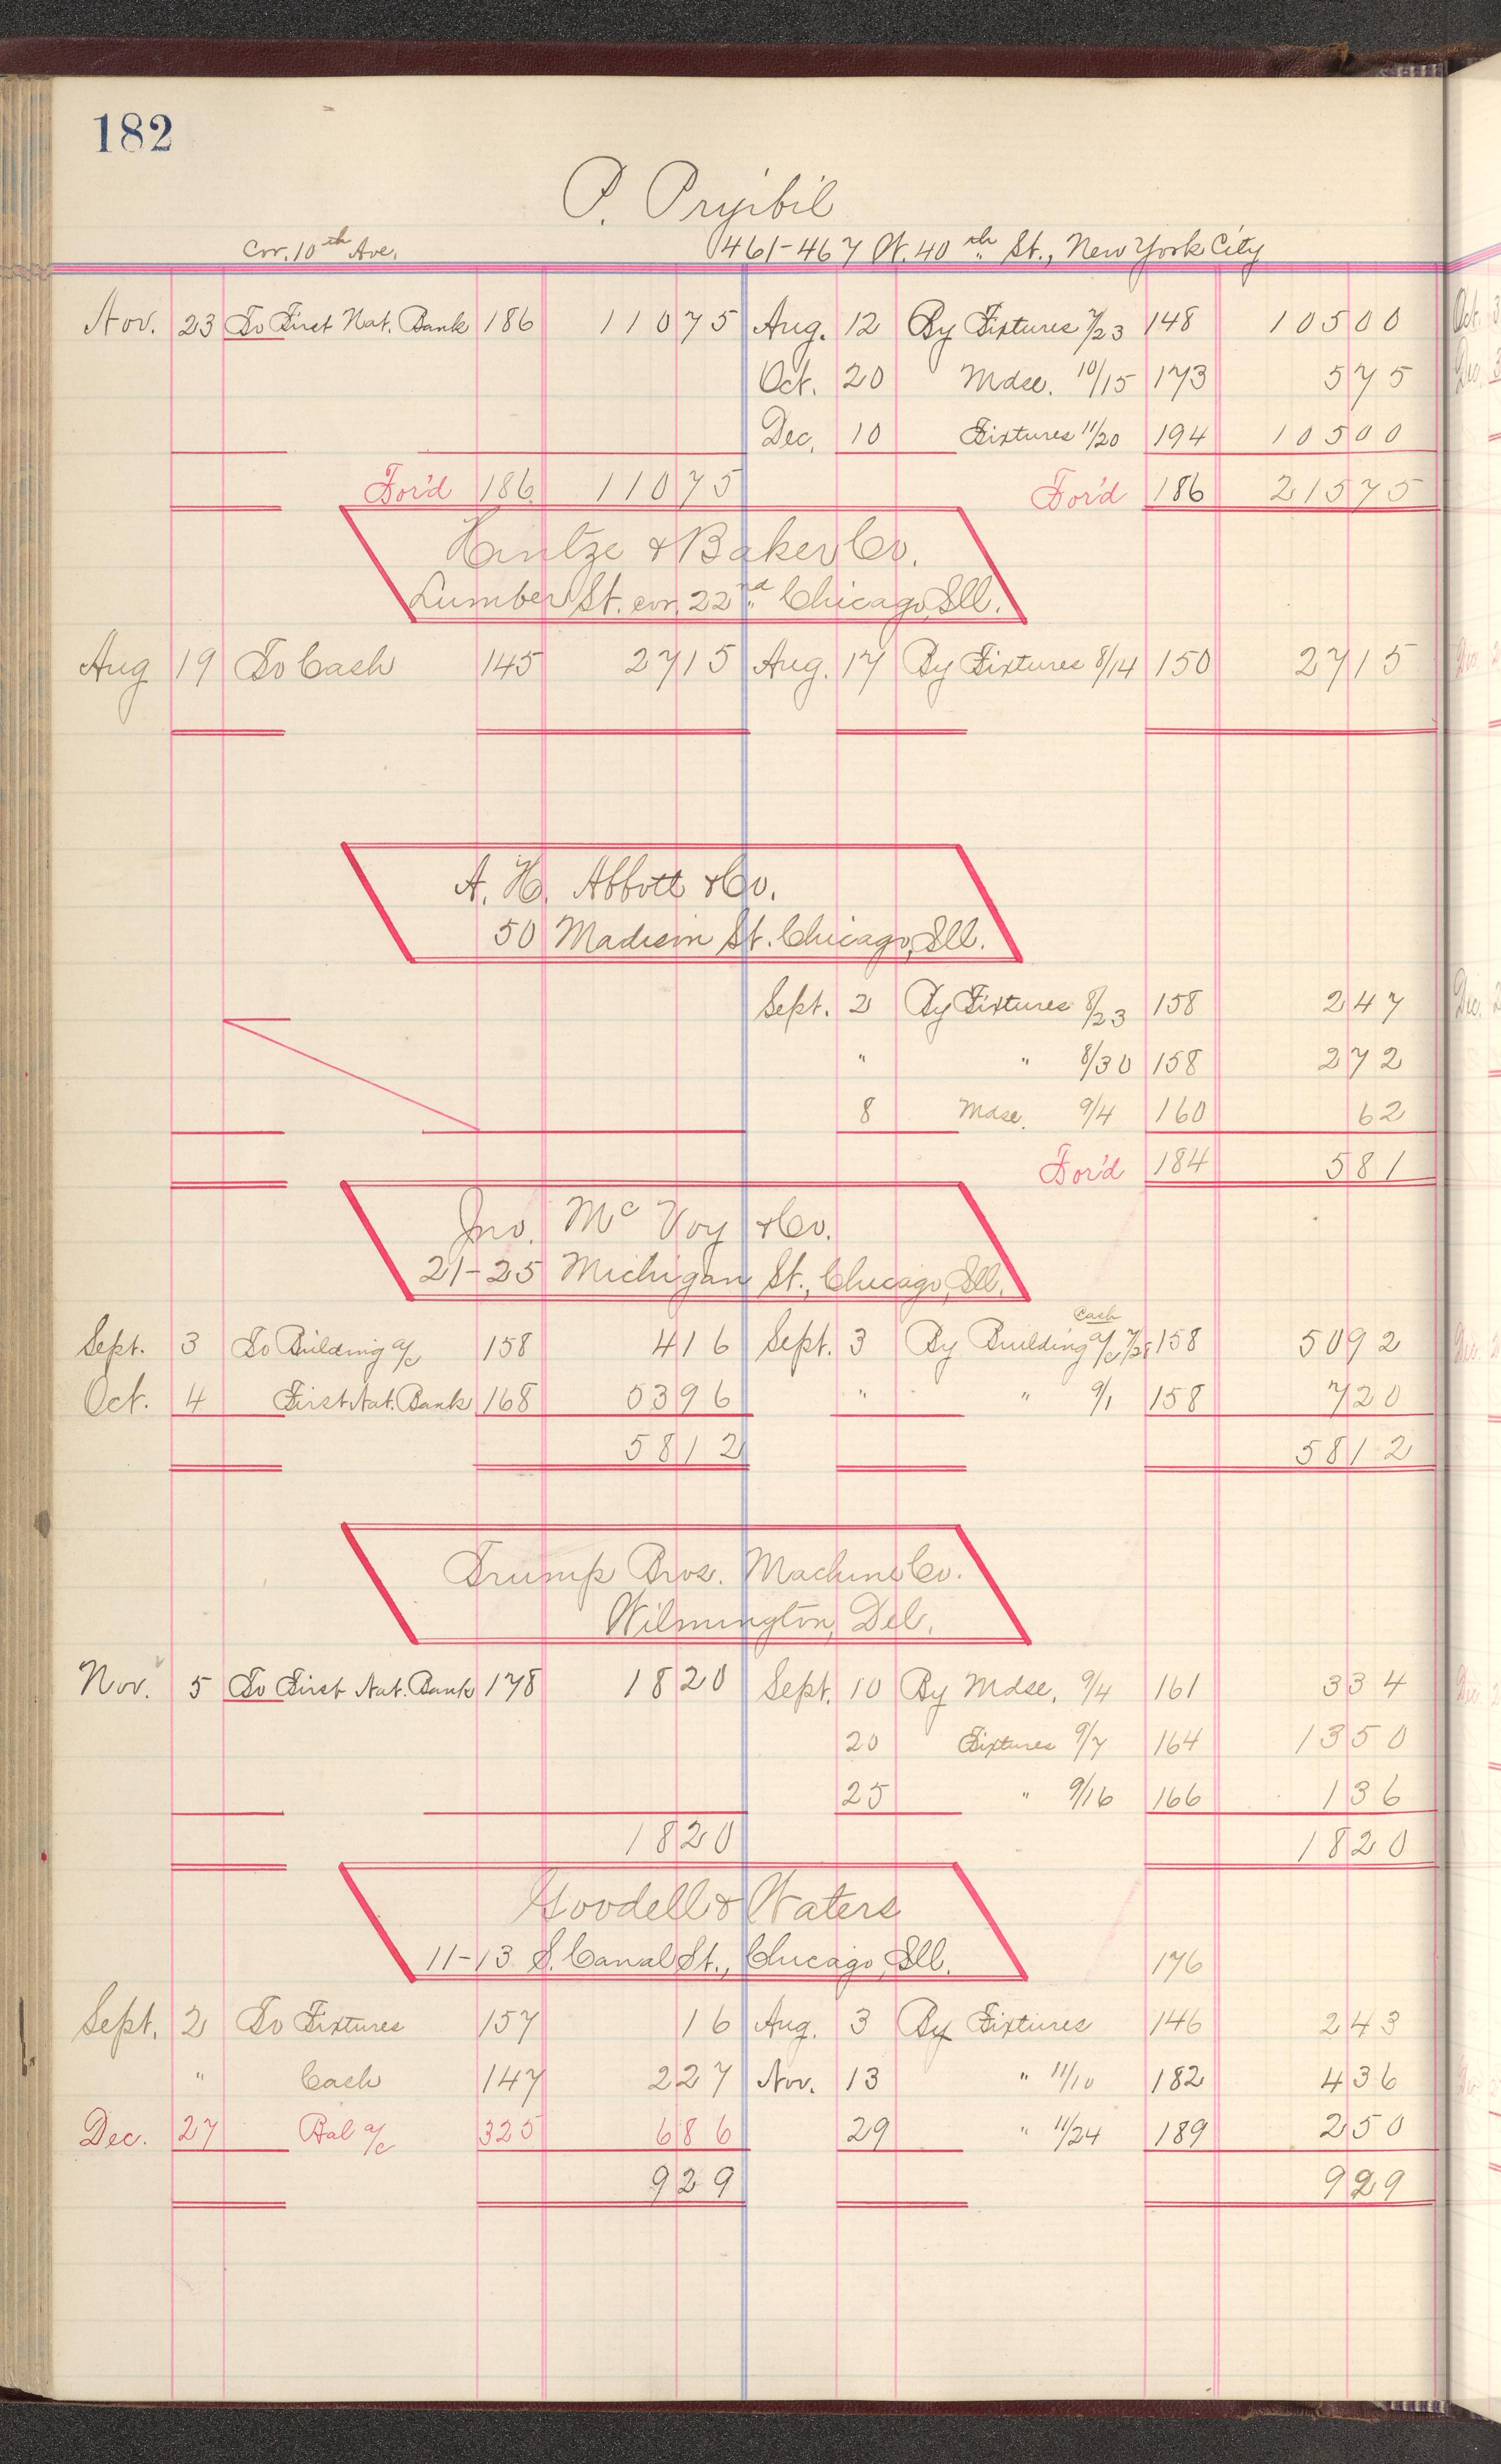 182
P. Pryibil
Cor. 10th Ave. 461-467 W. 40th St., New York City
Nov. 23 To First Nat. Bank 186 11075 Aug. 12 By Fixtures 7/23 148 10500
Oct. 20 Mdse. 10/15 173 575
Dec. 10 Fixtures 11/20 194 10500
For'd 186 11075 For'd 186 21575
Hintze & Baker Co.
Lumber St. cor. 22nd Chicago, Ill.
Aug 19 To Cash 145 2715 Aug. 17 By Fixtures 8/14 150 2715
A. H. Abbott & Co.
50 Madison St. Chicago, Ill.
Sept. 2 By Fixtures 8/23 158 247
" " 8/30 158 272
8 Mdse. 9/4 160 62
For'd 184 581
Jno. Mc Voy & Co.
21-25 Michigan St., Chicago, Ill.
Cash
Sept. 3 To Building a/c 158 416 Sept. 3 By Building a/c 7/28 158 5092
Oct. 4 First Nat. Bank 168 5396 " " 9/1 158 720
5812 5812
Trump Bros. Machine Co.
Wilmington, Del.
Nov. 5 To First Nat. Bank 178 1820 Sept. 10 By Mdse. 9/4 161 334
20 Fixtures 9/7 164 1350
25 " 9/16 166 136
1820 1820
Goodell & Waters
11-13 S. Canal St., Chicago, Ill.
176
Sept. 2 To Fixtures 157 16 Aug. 3 By Fixtures 146 243
" Cash 147 227 Nov. 13 " 11/10 182 436
Dec. 27 Bal a/c 325 686 29 " 11/24 189 250
929 929